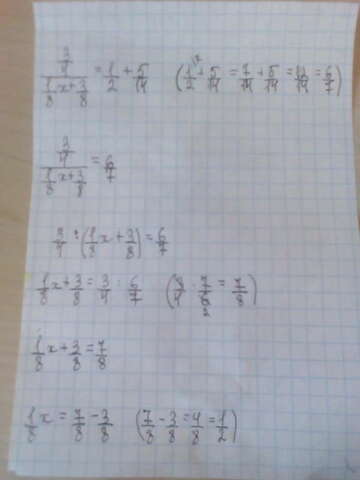 (3/4)/(1/8 x + 3/8) = 1/2 + 5/14 (1/2 + 5/14 = 7/14 + 5/14 = 12/14 = 6/7)
(3/4)/(1/8 x + 3/8) = 6/7
3/4 : (1/8 x + 3/8) = 6/7
1/8 x + 3/8 = 3/4 : 6/7 (3/4 · 7/6 = 7/8)
1/8 x + 3/8 = 7/8
1/8 x = 7/8 - 3/8 (7/8 - 3/8 = 4/8 = 1/2)